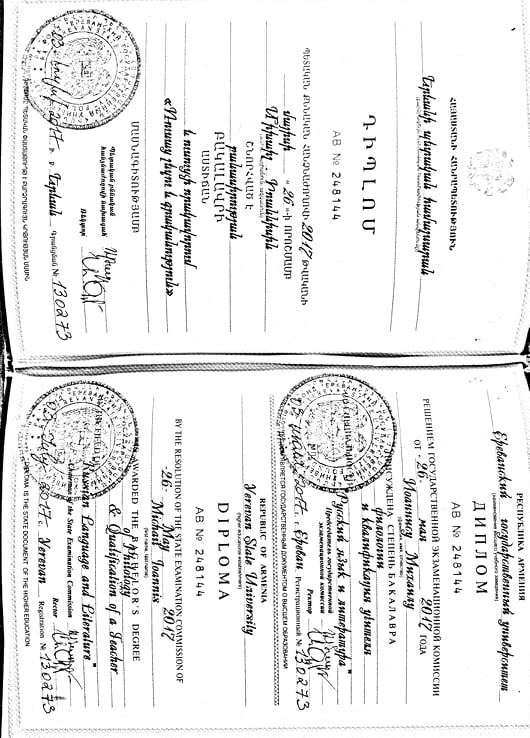 ՀԱՅԱՍՏԱՆԻ ՀԱՆՐԱՊԵՏՈՒԹՅՈՒՆ
Երևանի պետական համալսարան
ԴԻՊԼՈՄ
AB № 248144
ՊԵՏԱԿԱՆ ՔՆՆԱԿԱՆ ՀԱՆՁՆԱԺՈՂՈՎԻ 2017 ԹՎԱԿԱՆԻ
մայիսի " 26 "-Ի ՈՐՈՇՄԱՄԲ
ՇՆՈՐՀՎԱԾ Է
բանասիրության
ԲԱԿԱԼԱՎՐԻ
ԱՍՏԻՃԱՆ
և ուսուցչի որակավորում
«Ռուսաց լեզու և գրականություն»
ՄԱՍՆԱԳԻՏՈՒԹՅԱՄԲ
Պետական քննական
հանձնաժողովի նախագահ
Ռեկտոր
2017 թ. ք. Երևան Գրանցման № 130273
РЕСПУБЛИКА АРМЕНИЯ
Ереванский государственный университет
(наименование высшего учебного заведения)
ДИПЛОМ
AB № 248144
РЕШЕНИЕМ ГОСУДАРСТВЕННОЙ ЭКЗАМЕНАЦИОННОЙ КОМИССИИ
ОТ "26" мая 2017 ГОДА
Иоаннису Михаилу
(фамилия, имя, отчество)
ПРИСУЖДЕНА СТЕПЕНЬ БАКАЛАВРА
филологии
и квалификация учителя
ПО СПЕЦИАЛЬНОСТИ
"Русский язык и литература"
Председатель государственной
экзаменационной комиссии
Ректор
2017 г. г. Ереван Регистрационный № 130273
ДИПЛОМ ЯВЛЯЕТСЯ ГОСУДАРСТВЕННЫМ ДОКУМЕНТОМ О ВЫСШЕМ ОБРАЗОВАНИИ
REPUBLIC OF ARMENIA
Yerevan State University
DIPLOMA
AB № 248144
BY THE RESOLUTION OF THE STATE EXAMINATION COMMISSION OF
"26" May 2017
Michail Ioannis
IS AWARDED THE BACHELOR'S DEGREE
of Philology
& Qualification of a Teacher
IN THE FIELD OF
"Russian Language and Literature"
of the State Examination Commission
Rector
2017 c. Yerevan Registration № 130273
DIPLOMA IS THE STATE DOCUMENT OF THE HIGHER EDUCATION